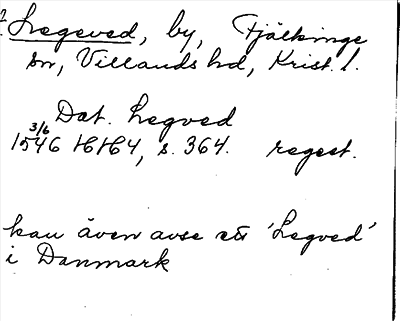 ? Legeved, by, Fjälkinge
sn, Villands hd, Krist. l.
Dat. Legved
3/6
1546 HH4, s. 364. regest.
kan även avse ett 'Legved'
i Danmark